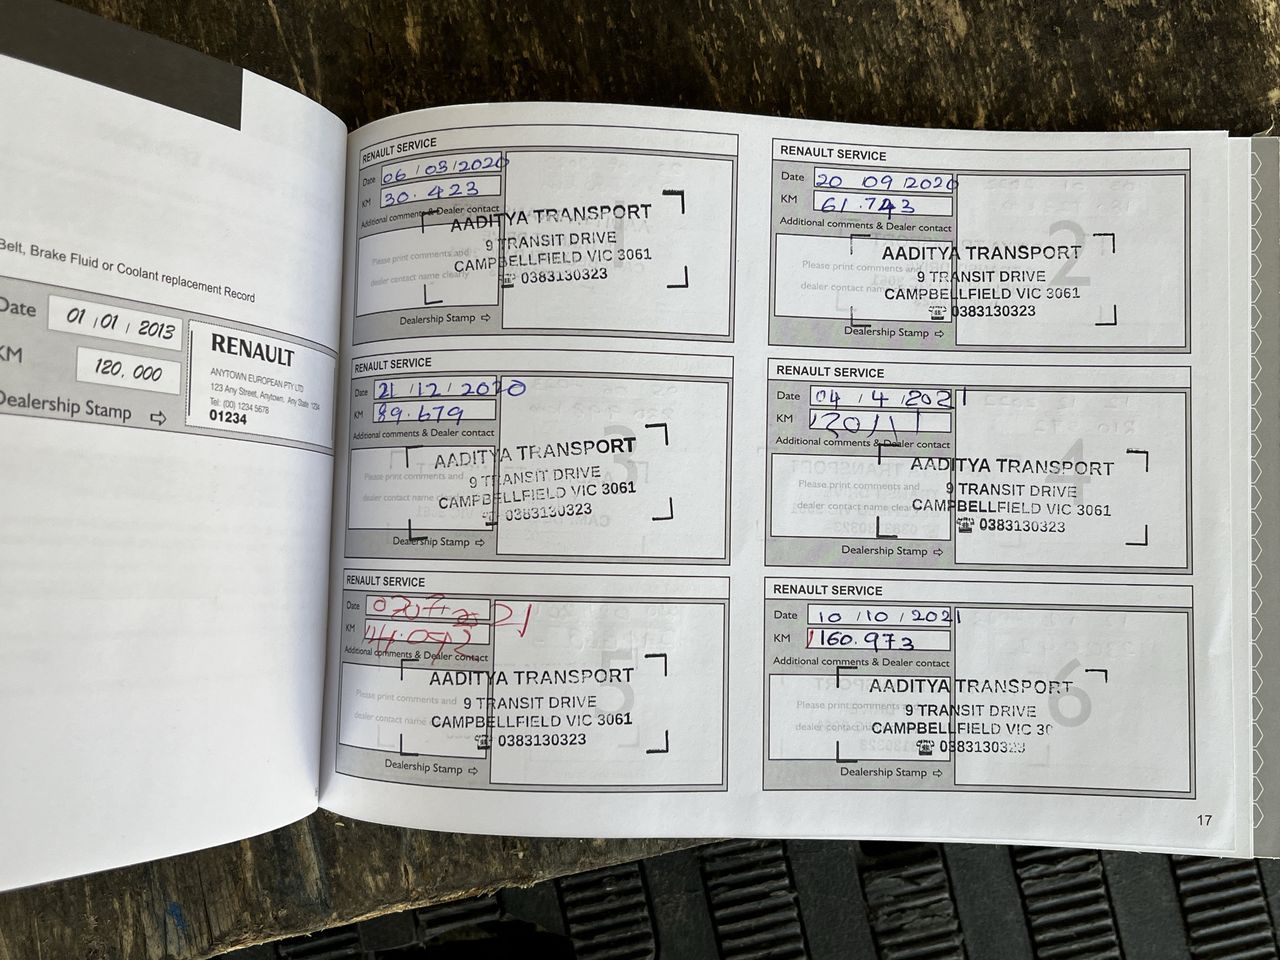 Belt, Brake Fluid or Coolant replacement Record
Date 01 / 01 / 2013
KM 120.000
Dealership Stamp ⇨
RENAULT
ANYTOWN EUROPEAN PTY LTD
123 Any Street, Anytown, Any State 1234
Tel: (00) 1234 5678
01234
RENAULT SERVICE
Date 06 / 03 / 2020
KM 30.423
Additional comments & Dealer contact
Please print comments and
dealer contact name clearly
AADITYA TRANSPORT
9 TRANSIT DRIVE
CAMPBELLFIELD VIC 3061
☎ 0383130323
Dealership Stamp ⇨
RENAULT SERVICE
Date 20 09 / 2020
KM 61.743
Additional comments & Dealer contact
2
Please print comments and
dealer contact name
AADITYA TRANSPORT
9 TRANSIT DRIVE
CAMPBELLFIELD VIC 3061
☎ 0383130323
Dealership Stamp ⇨
RENAULT SERVICE
Date 21 / 12 / 2020
KM 89.679
Additional comments & Dealer contact
3
Please print comments and
dealer contact name clearly
AADITYA TRANSPORT
9 TRANSIT DRIVE
CAMPBELLFIELD VIC 3061
☎ 0383130323
Dealership Stamp ⇨
RENAULT SERVICE
Date 04 / 4 / 2021
KM
Additional comments & Dealer contact
4
Please print comments and
dealer contact name clearly
AADITYA TRANSPORT
9 TRANSIT DRIVE
CAMPBELLFIELD VIC 3061
☎ 0383130323
Dealership Stamp ⇨
RENAULT SERVICE
Date
KM
Additional comments & Dealer contact
5
Please print comments and
dealer contact name
AADITYA TRANSPORT
9 TRANSIT DRIVE
CAMPBELLFIELD VIC 3061
☎ 0383130323
Dealership Stamp ⇨
RENAULT SERVICE
Date 10 / 10 / 2021
KM 160.973
Additional comments & Dealer contact
6
Please print comments and
dealer contact
AADITYA TRANSPORT
9 TRANSIT DRIVE
CAMPBELLFIELD VIC 30
☎ 0383130323
Dealership Stamp ⇨
17